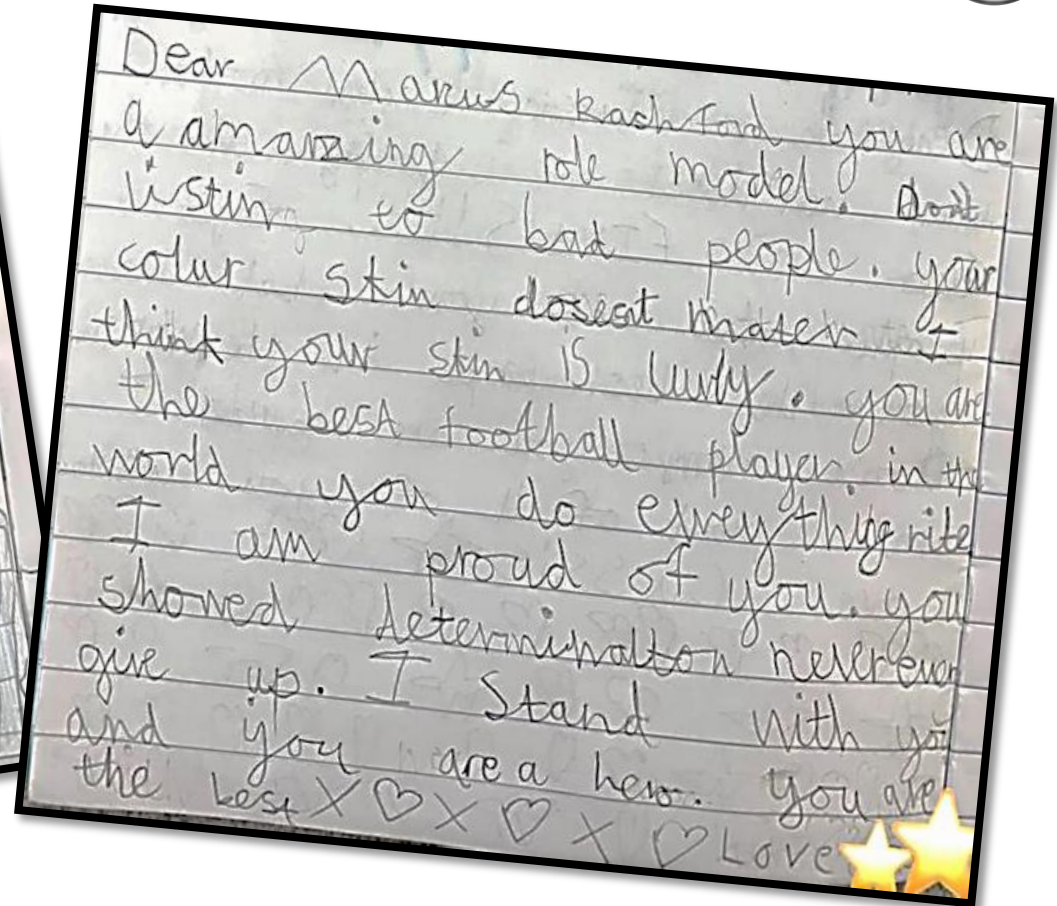 Dear Marcus Rashford you are
a amanzing role model. Don't
listin to bad people. your
colur skin doseat mater I
think your skin is luvly. you are
the best football player in the
world you do evreything rite
I am proud of you. you
showed determinalton never ever
give up. I stand with you
and you are a hero. you are
the best X ♡ X ♡ X ♡ Love